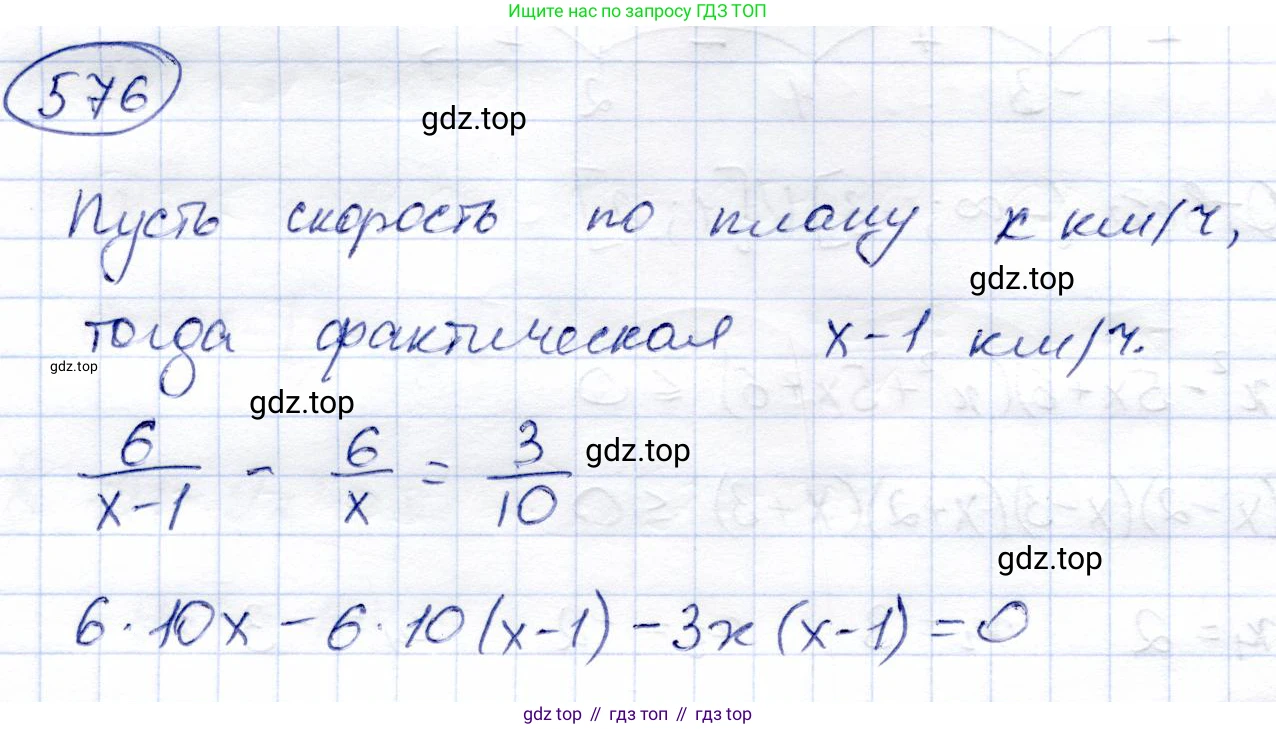 Ищите нас по запросу ГДЗ ТОП
576
gdz.top
Пусть скорость по плану x км/ч,
gdz.top
тогда фактическая x-1 км/ч.
gdz.top
gdz.top
6/(x-1) - 6/x = 3/10
gdz.top
gdz.top
6·10x - 6·10(x-1) - 3x(x-1) = 0
gdz top // гдз топ // gdz top